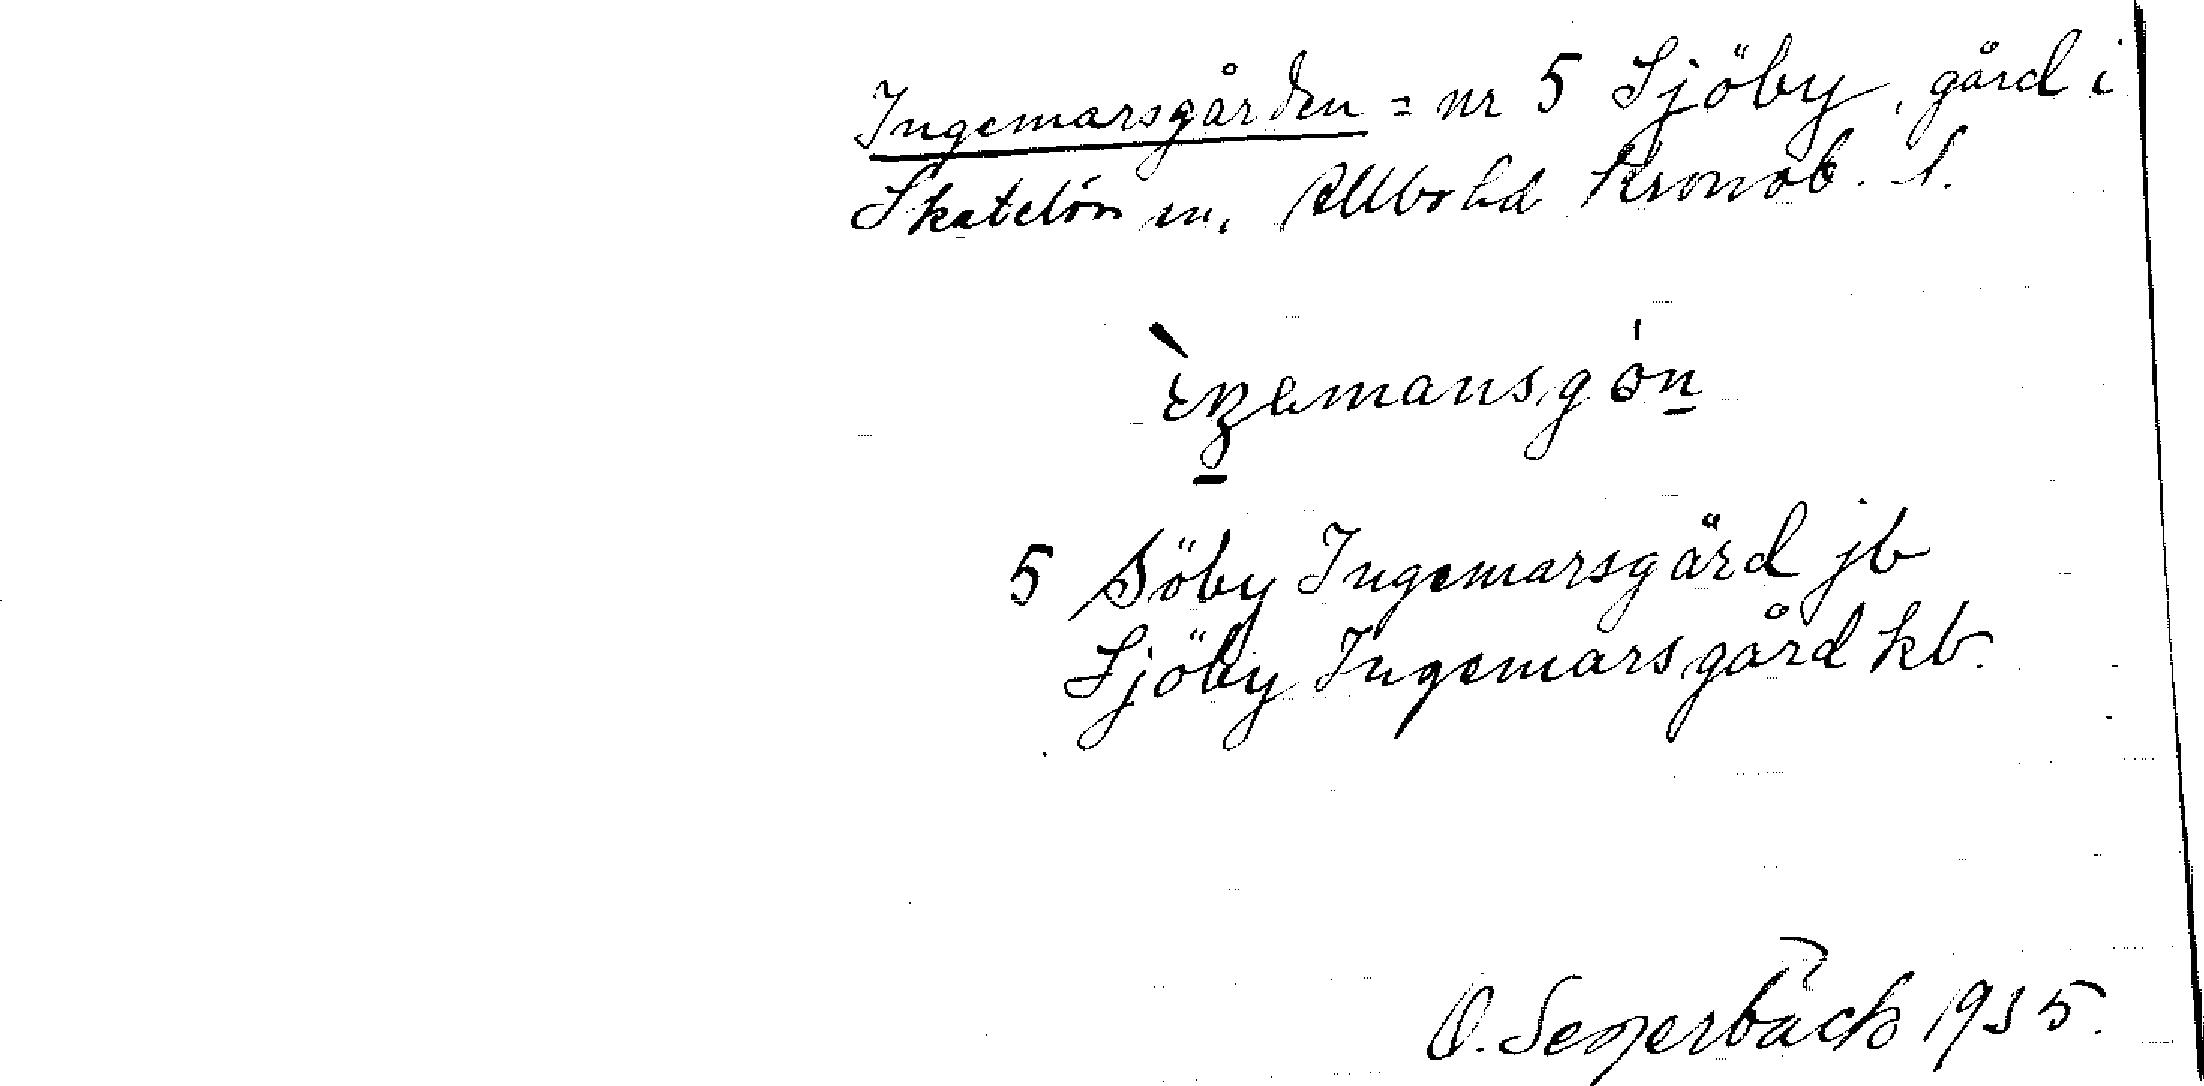 Ingemarsgården = nr 5 Sjöby, gård i
Skatelöv sn. Allbo hd Kronob. l.
5 Söby Ingemarsgärd jb
Sjöby Ingemarsgård kb.
O. 1935.